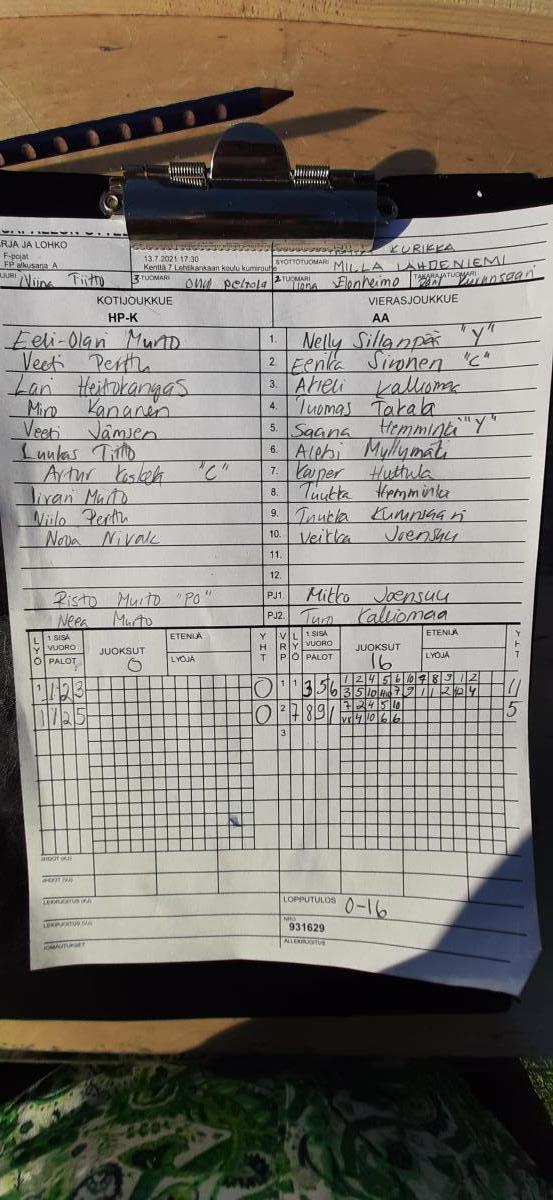 ARJA JA LOHKO
F-pojat
FP alkusarja A
13.7.2021 17:30
Kenttä 7 Lehtikankaan koulu kumirouhe
KURIKKA
SYÖTTÖTUOMARI MILLA LAHDENIEMI
Niina Tiitto 3-TUOMARI Onni Peltola 2-TUOMARI Ilona Elonheimo TAKARAJATUOMARI
KOTIJOUKKUE VIERASJOUKKUE
HP-K AA
Eeli-Olavi Murto 1. Nelly Sillanpää "Y"
Veeti Perttu 2. Eerika Sironen "C"
Lari Heitokangas 3. Atteli Kalliomaa
Miro Kananen 4. Tuomas Takala
Veeti Jämsen 5. Saana Hemminki "Y"
Luukas Tiitto 6. Aleksi Myllymäki
Artur "C" 7. Kasper Huttula
Iivari Murto 8. Tuukka Hemminki
Niilo Perttu 9. Tuukka Kurunsaari
Nova 10. Veikka Joensuu
11.
12.
Risto Murto "PO" PJ1. Mitko Joensuu
Neea Murto PJ2. Kalliomaa
LYÖ 1.SISÄ VUORO PALOT JUOKSUT 0 ETENIJÄ LYÖJÄ YHT VRP LYÖ 1 SISÄ VUORO PALOT JUOKSUT 16 ETENIJÄ LYÖJÄ YHT
1 1 2 3 0 1 1 3 5 6 1 2 4 5 6 10 7 8 9 1 2 11
1 1 2 5 0 2 7 8 9 1 7 2 4 5 10 5
VR 4 10 6 6
3
LOPPUTULOS 0-16
NRO
931629
ALLEKIRJOITUS
HUOMAUTUKSET